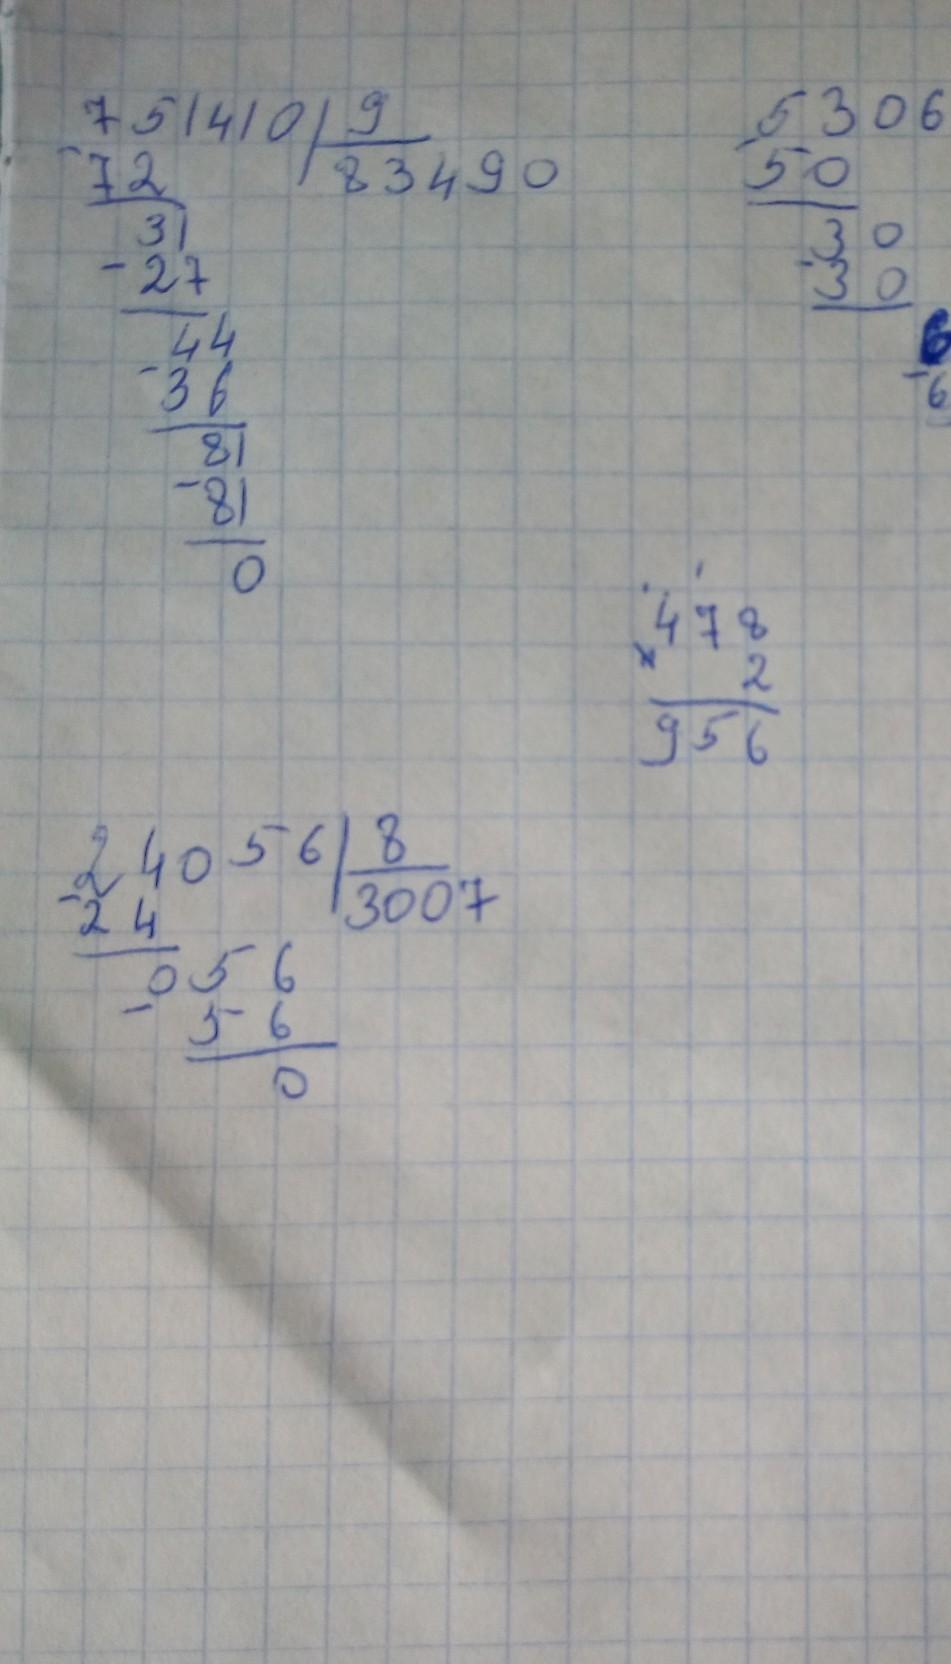 751410 9
- 72 83490
31
- 27
44
- 36
81
- 81
0
5306
- 50
30
- 30
6
- 6
478
× 2
956
24056 8
- 24 3007
056
- 56
0